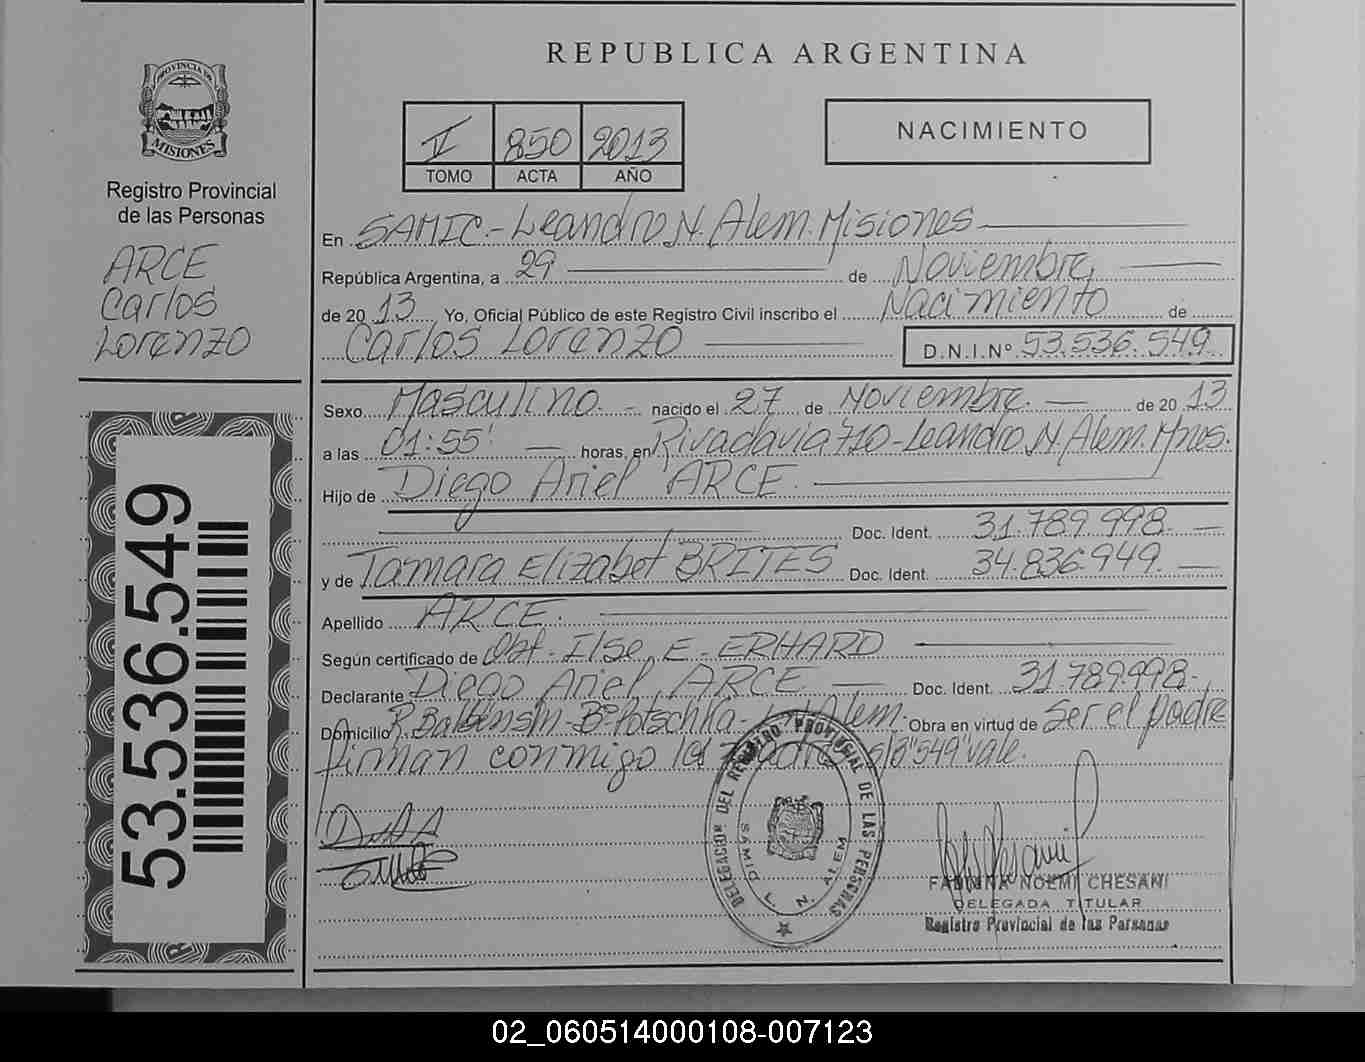 REPUBLICA ARGENTINA
PROVINCIA DE
MISIONES
Registro Provincial
de las Personas
ARCE
Carlos
Lorenzo
53.536.549
II 850 2013
TOMO ACTA AÑO
NACIMIENTO
En SAMIC.- Leandro N. Alem. Misiones
República Argentina, a 29 de Noviembre
de 20 13 Yo, Oficial Público de este Registro Civil inscribo el Nacimiento de
Carlos Lorenzo D.N.I.Nº 53.536.549
Sexo Masculino. nacido el 27 de Noviembre. de 20 13
a las 01:55' horas, en Rivadavia 710-Leandro N. Alem. Mnes.
Hijo de Diego Ariel ARCE.
Doc. Ident. 31.789.998.
y de Tamara Elizabet BRITES Doc. Ident. 34.836.949.
Apellido ARCE.
Según certificado de Obt. Ilse E. ERHARD
Declarante Diego Ariel ARCE Doc. Ident. 31.789.998.
Domicilio Bº Potschka- Alem. Obra en virtud de Ser el padre
firman conmigo los padres s/B "549" vale.
DELEGACION DEL REGISTRO PROVINCIAL DE LAS PERSONAS
SAMIC L. N. ALEM
FABIANA NOEMI CHESANI
DELEGADA TITULAR
Registro Provincial de las Personas
02_060514000108-007123